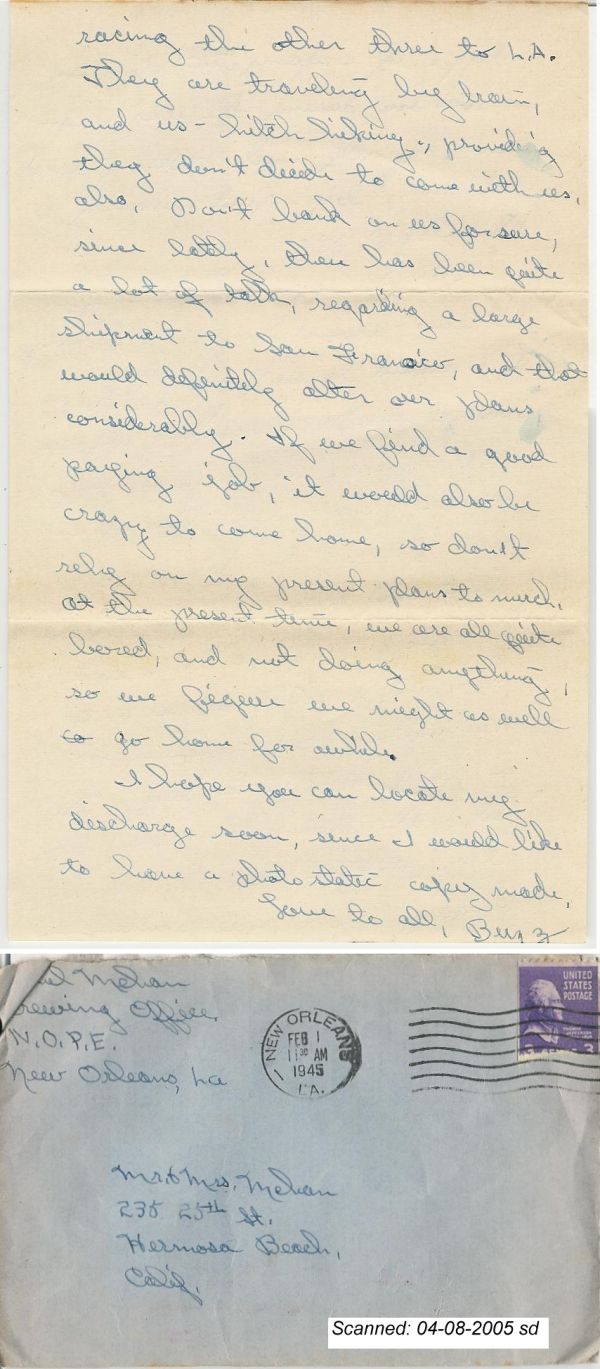 racing the other three to L.A.
They are traveling by train,
and us - hitch hiking, providing
they don't decide to come with us,
also. Don't bank on us for sure,
since lately, there has been quite
a lot of talk, regarding a large
shipment to San Francisco, and that
would definitely alter our plans
considerably. If we find a good
paying job, it would also be
crazy to come home, so don't
rely on my present plans to much.
at the present time, we are all quite
bored, and not doing anything,
so we figure we might as well
go home for awhile.
I hope you can locate my
discharge soon, since I would like
to have a photo static copy made.
Love to all, Buzz
Mehan
Crewing Office
N.O.P.E.
New Orleans, La
NEW ORLEANS
FEB 1
11 30 AM
1945
LA.
UNITED
STATES
POSTAGE
3
Mr. & Mrs. Mehan
235 25th St.
Hermosa Beach,
Calif.
Scanned: 04-08-2005 sd